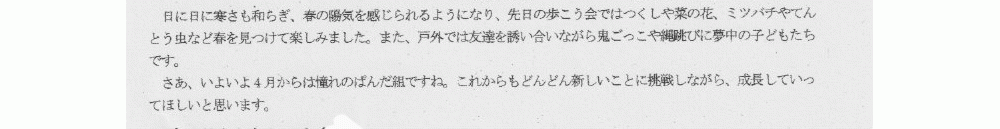 日に日に寒さも和らぎ、春の陽気を感じられるようになり、先日の歩こう会ではつくしや菜の花、ミツバチやてん
とう虫など春を見つけて楽しみました。また、戸外では友達を誘い合いながら鬼ごっこや縄跳びに夢中の子どもたち
です。
さあ、いよいよ４月からは憧れのぱんだ組ですね。これからもどんどん新しいことに挑戦しながら、成長していっ
てほしいと思います。